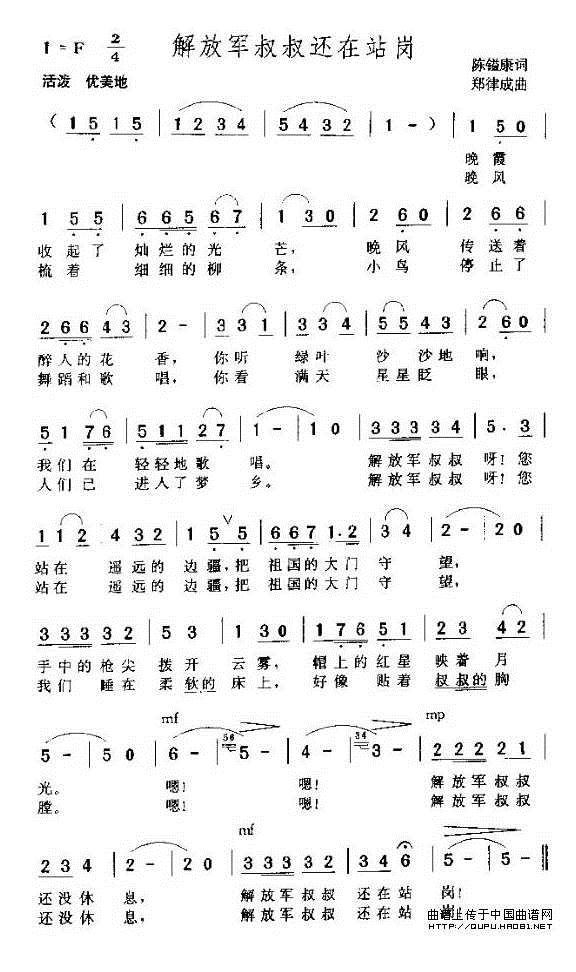 1 = F 2/4 解放军叔叔还在站岗
陈镒康词
活泼 优美地 郑律成曲
( 1 5 1 5 | 1 2 3 4 | 5 4 3 2 | 1 - ) | 1 5 0 |
晚 霞
晚 风
1 5 5 | 6 6 5 6 7 | 1 3 0 | 2 6 0 | 2 6 6 |
收 起 了 灿 烂 的 光 芒, 晚 风 传 送 着
梳 着 细 细 的 柳 条, 小 鸟 停 止 了
2 6 6 4 3 | 2 - | 3 3 1 | 3 3 4 | 5 5 4 3 | 2 6 0 |
醉 人 的 花 香, 你 听 绿 叶 沙 沙 地 响,
舞 蹈 和 歌 唱, 你 看 满 天 星 星 眨 眼,
5 1 7 6 | 5 1 1 2 7 | 1 - | 1 0 | 3 3 3 3 4 | 5 . 3 |
我 们 在 轻 轻 地 歌 唱。 解 放 军 叔 叔 呀! 您
人 们 已 进 入 了 梦 乡。 解 放 军 叔 叔 呀! 您
1 1 2 | 4 3 2 | 1 5 ∨ 5 | 6 6 7 1 . 2 | 3 4 | 2 - | 2 0 |
站 在 遥 远 的 边 疆, 把 祖 国 的 大 门 守 望,
站 在 遥 远 的 边 疆, 把 祖 国 的 大 门 守 望,
3 3 3 3 2 | 5 3 | 1 3 0 | 1 7 6 5 1 | 2 3 4 2 |
手 中 的 枪 尖 拨 开 云 雾, 帽 上 的 红 星 映 着 月
我 们 睡 在 柔 软 的 床 上, 好 像 贴 着 叔 叔 的 胸
mf mp
5 - | 5 0 | 6 - | 56 5 - | 4 - | 34 3 - | 2 2 2 2 1 |
光。 嗯! 嗯! 解 放 军 叔 叔
膛。 嗯! 嗯! 解 放 军 叔 叔
mf
2 3 4 | 2 - | 2 0 | 3 3 3 3 2 | 3 4 6 | 5 - | 5 - ‖
还 没 休 息, 解 放 军 叔 叔 还 在 站 岗!
还 没 休 息, 解 放 军 叔 叔 还 在 站 岗!
曲谱上传于中国曲谱网
HTTP://QUPU.HAO81.NET